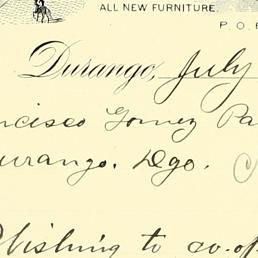 ALL NEW FURNITURE.
P. O.
Durango, July
ncisco Gomez Pa
urango. Dgo.
Wishing to co-op